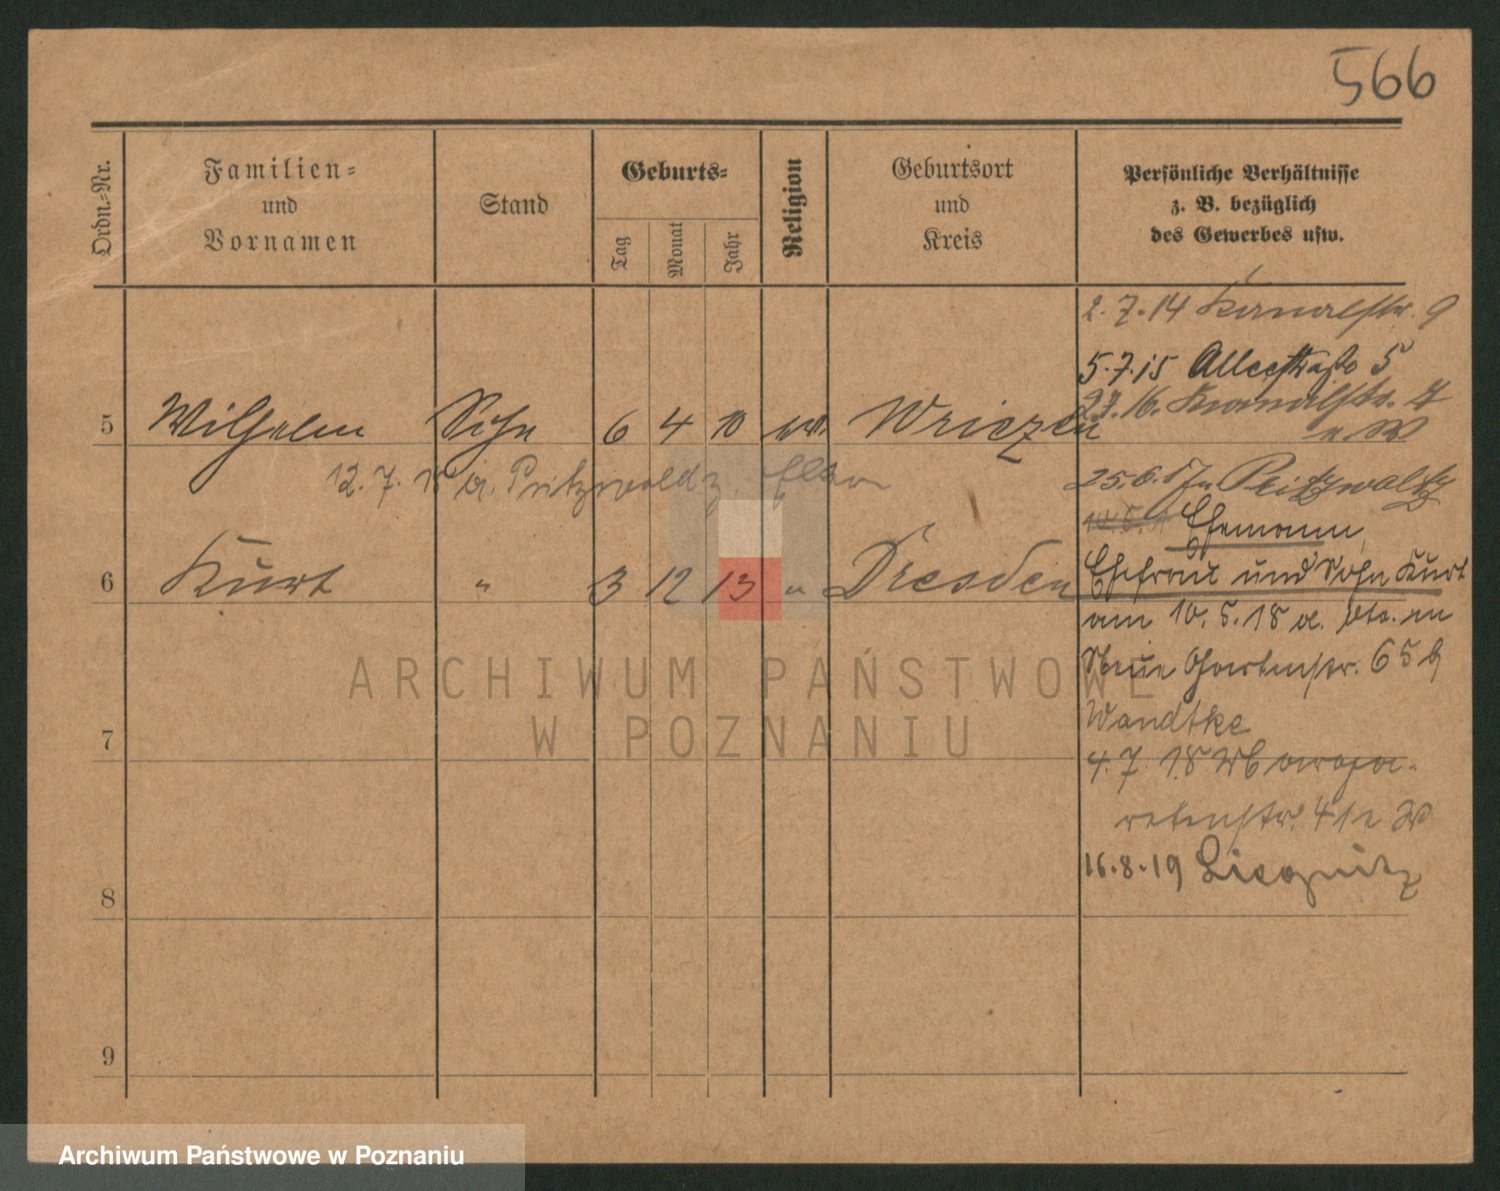 566
Ordn.-Nr.
Familien-
und
Vornamen
Stand
Geburts-
Tag
Monat
Jahr
Religion
Geburtsort
und
Kreis
Persönliche Verhältnisse
z. B. bezüglich
des Gewerbes usw.
2.7.14 Kanalstr. 9
5.7.15 Alleestraße 5
5 Wilhelm Sohn 6 4 10 ev. Wriezen
12.7. Pritzwald z. Eltern
25.6.17 n Pritzwalk
Ehemann,
6 Kurt " 3 12 13 " Dresden
Ehefrau und Sohn Kurt
am 10.5.18 a. Ww. in
Neue Gartenstr. 65 b
Wandtke
7
4.7.18
16.8.19 Liegnitz
8
9
ARCHIWUM PAŃSTWOWE
W POZNANIU
Archiwum Państwowe w Poznaniu